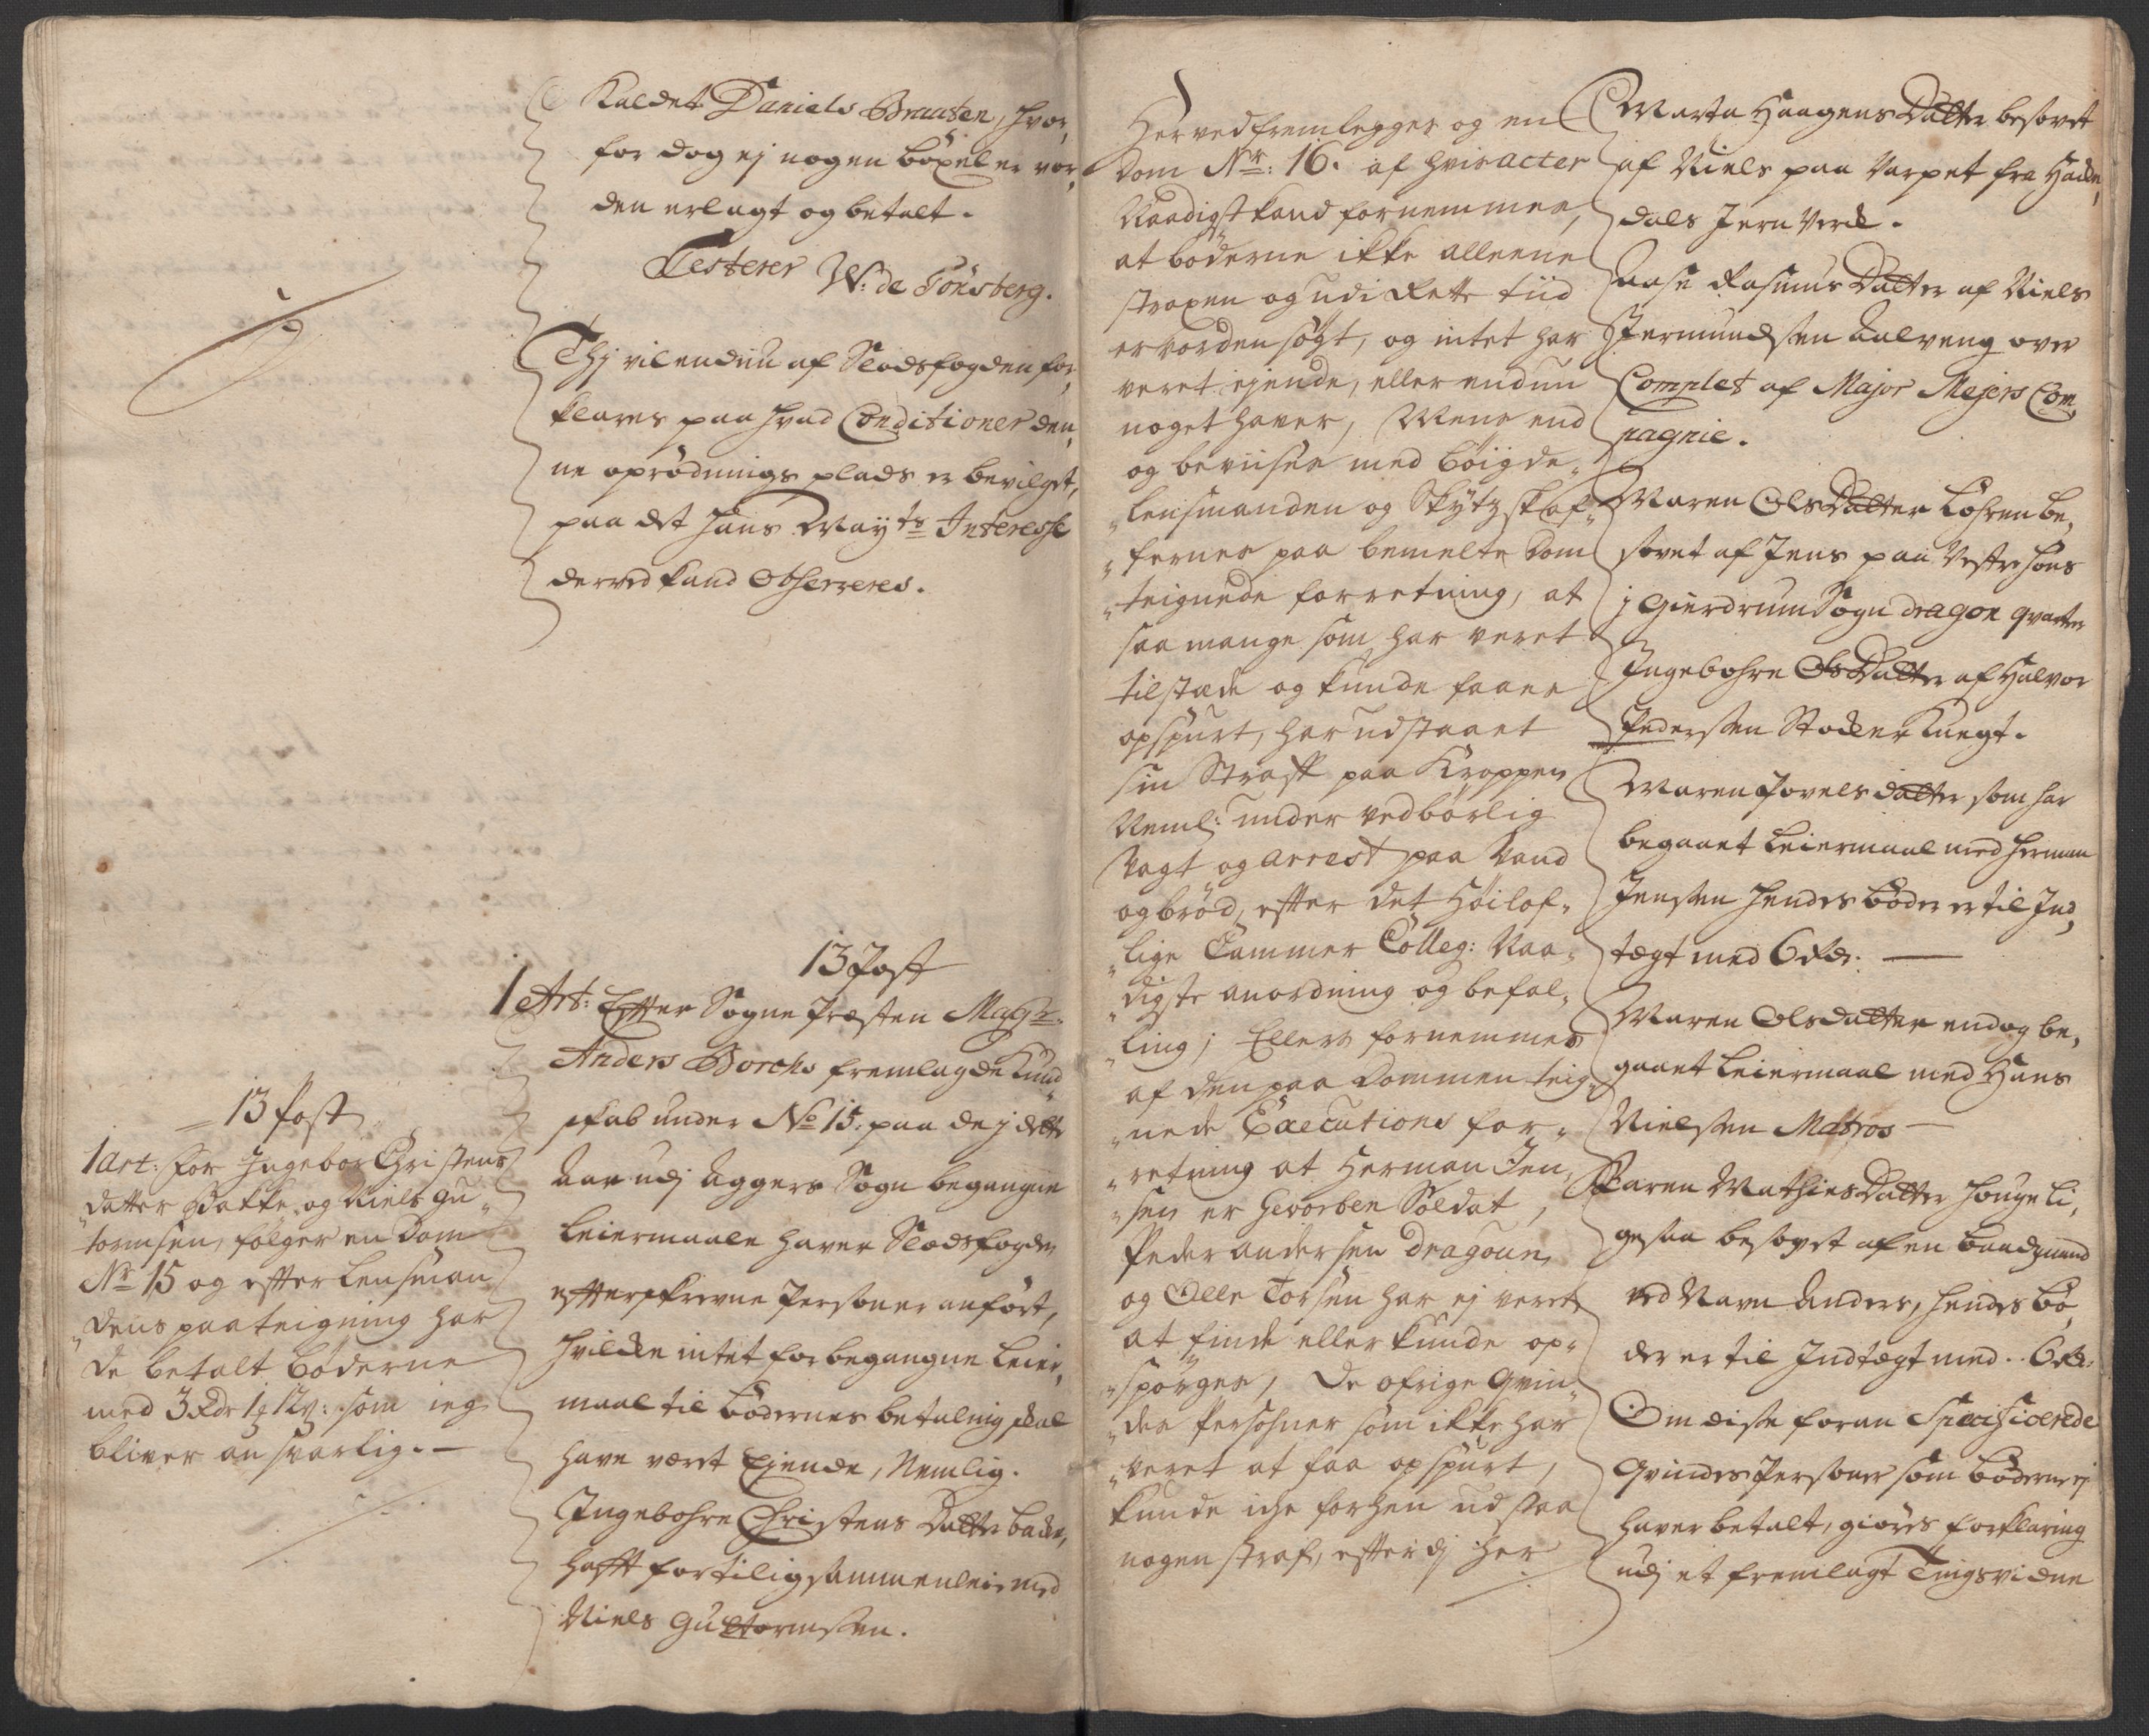 Kaldet Daniels Braaten, hvor,
for dog ej nogen böxel er vor,
den erlagt og betalt.
Testerer W: de Tönsberg.
Thj vil endnu af Slodsfogden for,
klares paa hvad Conditioner den,
ne oprödnings plads er bevilget,
paa det Hans Mayts Interesse
derved kand Observeres.
13 Post
1 Art: Efter Sogne Præsten Magr.
Anders Borchs fremlagde Kund
skab under No 15. paa de j dette
Aar udj Aggers Sogn begangne
Leiermaale haver Slodsfogden
efterskrevne Personer anfört,
hvilcke intet for begangne Leier,
maal til bödernes betalnig skal
have været Ejende, Nemlig.
Ingebohre Christens Datter backe,
hafft fortilig sammenleie med
Niels Guttormssen.
13 Post
1 Art: For Ingebor Christens
datter Bakke, og Niels Gu
tormsen, fölger en Dom
Nr 15 og efter Lensman
dens paateigning har
de betalt böderne
med 3 Rdr 1 12 : som ieg
bliver ansvarlig. —
Herved fremlegges og en
Dom Nr: 16. af hvis acter
Naadigst kand fornemmes,
at böderne ikke alleene
straxen og udi Rette tiid
er vorden sögt, og intet har
veret ejende, eller endnu
noget haver, Mens end
og beviises med böigde
lensmanden og Skytzskaf
fernes paa bemelte Dom
teignede forretning, at
saa mange som har veret
tilstæde og kunde faaes
opspurt, har udstaaet
sin Straff paa Kroppen
Neml: under vedbörlig
Vagt og arrest paa Vand
og bröd, efter det Höilof
lige Cammer Colleg: Naa
digste anordning og befal
ling; Ellers fornemmes
af den paa Dommen teig
nede Executions for
retning at Herman Jen
sen er hvorben Soldat,
Peder Andersen Dragoun,
og Olle Torsen har ej veret
at finde eller kunde op
spörges, De öfrige Qvin
des Persohner som ikke har
veret at faa opspurt,
kunde iche forhen udstaa
nogen straf, efterdj her
Marta Haagens Datter besovet
af Niels paa Varpet fra Hacke,
dals Jern Verck.
Aase Rasmus Datter af Niels
Germundssen Kalveng over
Complet af Major Mejers Com,
pagnie.
Maren Ols Datter Löhren be,
sovet af Jens paa Vestre Höns
j Gierdrum Sogn dragon qvarter
Ingebohre Ols Datter af Halvor
Pederssen Stocker Knegt.
Maren Povels datter som har
begaaet Leiermaal med Herman
Jenssen hendes böder er til Ind,
tægt med 6 Rdr. —
Maren Olsdatter endog be,
gaaet Leiermaal med Hans
Nielssen Matros —
Karen Mathies Datter Houge li,
gesaa besovet af en baadzmand
ved Navn Anders, hendes bö,
der er til Indtægt med .. 6 Rdr:
Om disse foran Specificerede
Qvindes Personer som böderne ej
haver betalt, giöres forklaring
udj et fremlagt Tingsvidne